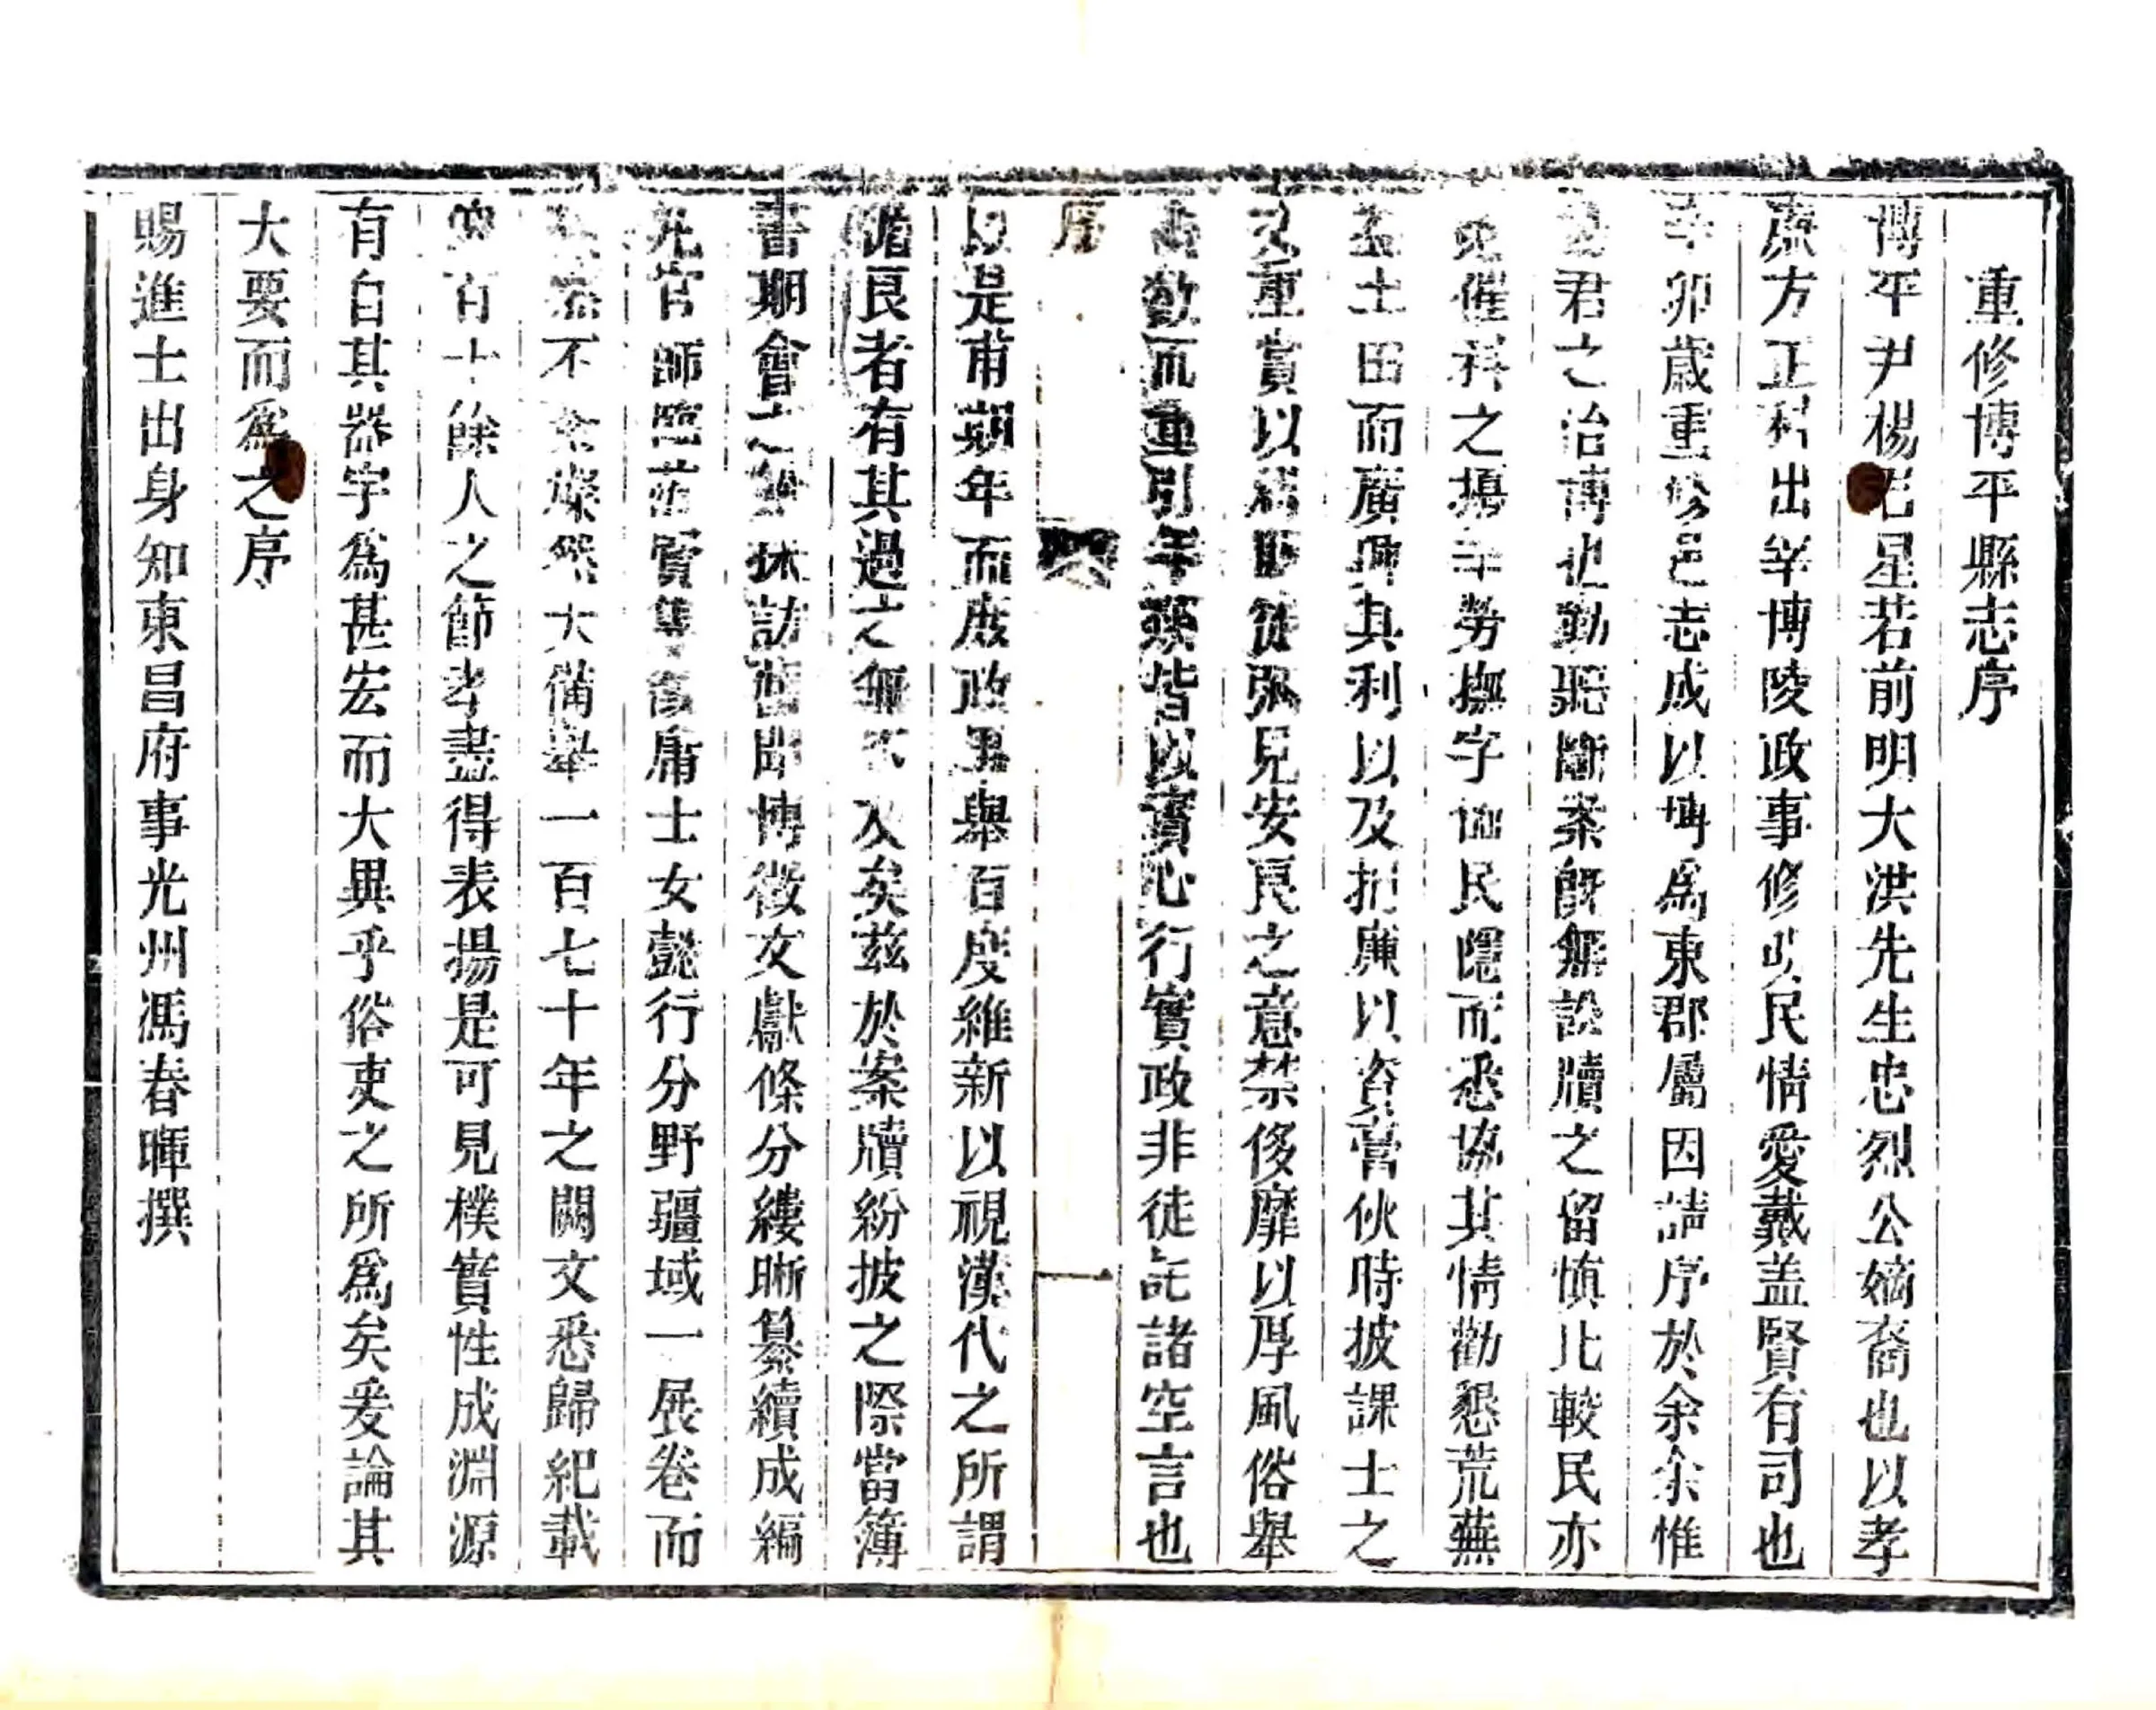 重修博平縣志序
博平尹楊君星若前明大洪先生忠烈公嫡裔也以孝
廉方正科出宰博陵政事修明民情愛戴盖賢有司也
辛卯歲重修邑志成以博爲東郡屬因請序於余余惟
楊君之治博也勤聽斷案既無訟牘之留慎比較民亦
免催科之擾辛勞撫字恤民隱而悉協其情勸懇荒蕪
土田而廣其利以及捐廉以資膏伙時披課士之
重賞以弭盜徒弥見安良之意禁侈靡以厚風俗舉
而重引年類皆以實心行實政非徒託諸空言也
序
一
以是甫期年而庶政畢舉百度維新以視漢代之所謂
循良者有其過之無不及矣茲於案牘紛披之際當簿
書期會之餘採訪舊聞博徵文獻條分縷晰纂續成編
凡官師臨莅賢雋登庸士女懿行分野疆域一展卷而
不燦然大備舉一百七十年之闕文悉歸紀載
百十餘人之節孝盡得表揚是可見樸實性成淵源
有自其器宇爲甚宏而大異乎俗吏之所爲矣爰論其
大要而爲之序
賜進士出身知東昌府事光州馮春暉撰